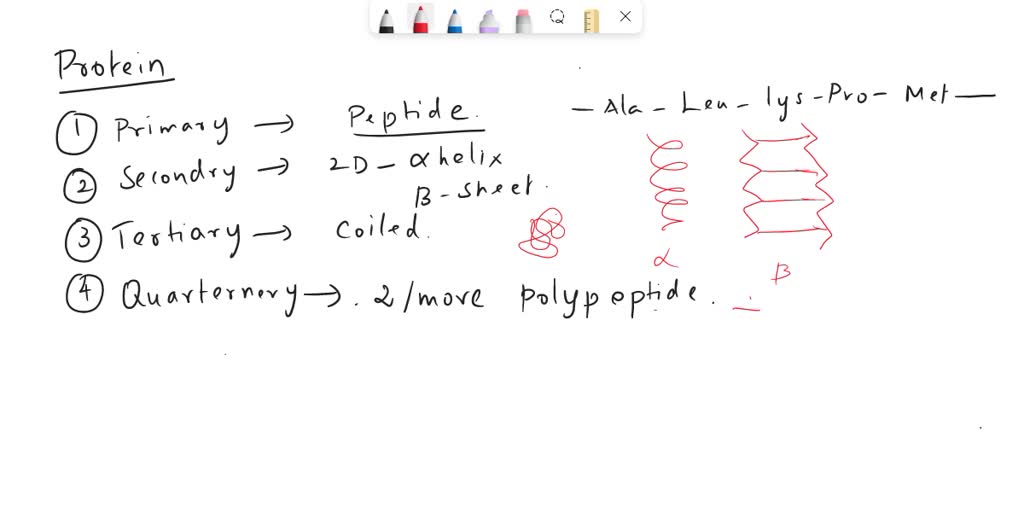 Protein
① Primary → Peptide.
- Ala - Leu - lys - Pro - Met -
② Secondry → 2D - α helix
β - sheet.
③ Tertiary → Coiled.
④ Quarternery → . 2/more polypeptide.
α
β